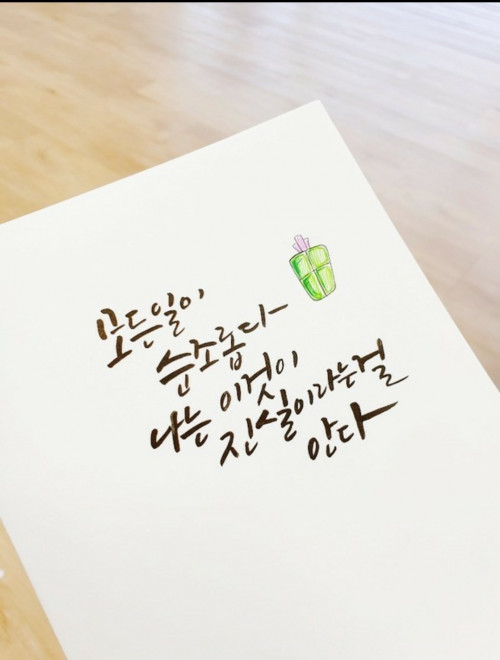 모든일이
순조롭다
나는 이것이
진실이라는걸
안다